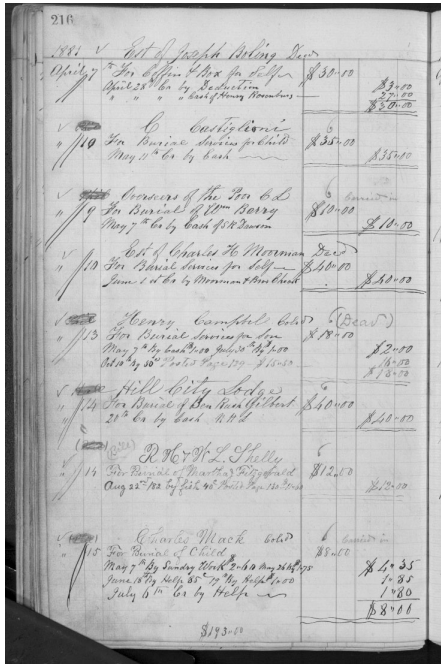 216
1881 Est of Joseph Boling Decd
April 7 th For Coffin & Box for Self $30.00
April 28th Cr by Deduction $3.00
" " " " Cash of Henry 27.00
$30.00
C Castiglioni
" 10 For Burial Services for Child $35.00
May 11th Cr by Cash $35.00
Overseers of the Poor C L
" 9 For Burial of Wm Barry $10.00
May 7th Cr by Cash of S K Dawson $10.00
Est of Charles H. Moorman Decd
" 10 For Burial Services for Self $40.00
June 1st Cr by Moorman & $40.00
Henry Campbel Cold (Dead)
" 13 For Burial Services for Son $18.00
May 7th By Cash 1.00 July 30th By 1.00 $2.00
Oct 10th By 50c Posted Page 139 $15.50 16.00
$18.00
Hill City Lodge
" 14 For Burial of Ben Gilbert $40.00
20th Cr by Cash $40.00
R. H & W. L. Shelly
" 14 For Burial of Martha Fitzgerald $12.00
Aug 22nd 182 By fish Posted Page 130 $12.00
Charles Mack Cold
" 15 For Burial of Child $8.00
May 7th By Sundry Work May 26 $4.35
June 16th By Help 85c By Help 1.00 1.85
July 4th Cr by Help 1.80
$8.00
$193.00